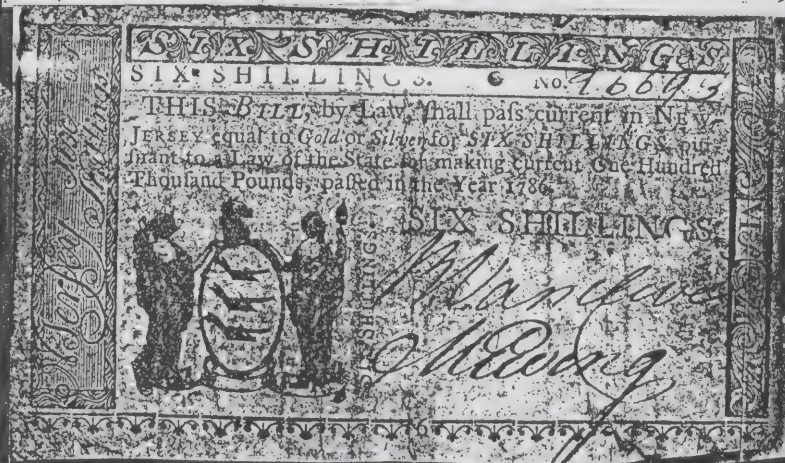 SIX SHILLINGS
SIX SHILLINGS. No. 96693
THIS BILL, by Law, ſhall paſs current in NEW-
JERSEY equal to Gold or Silver for SIX SHILLINGS, pur-
ſuant to a Law of the State for making current One Hundred
Thouſand Pounds, paſſed in the Year 1786.
SIX SHILLINGS.
SHILLINGS.
Jerſey Six Shillings